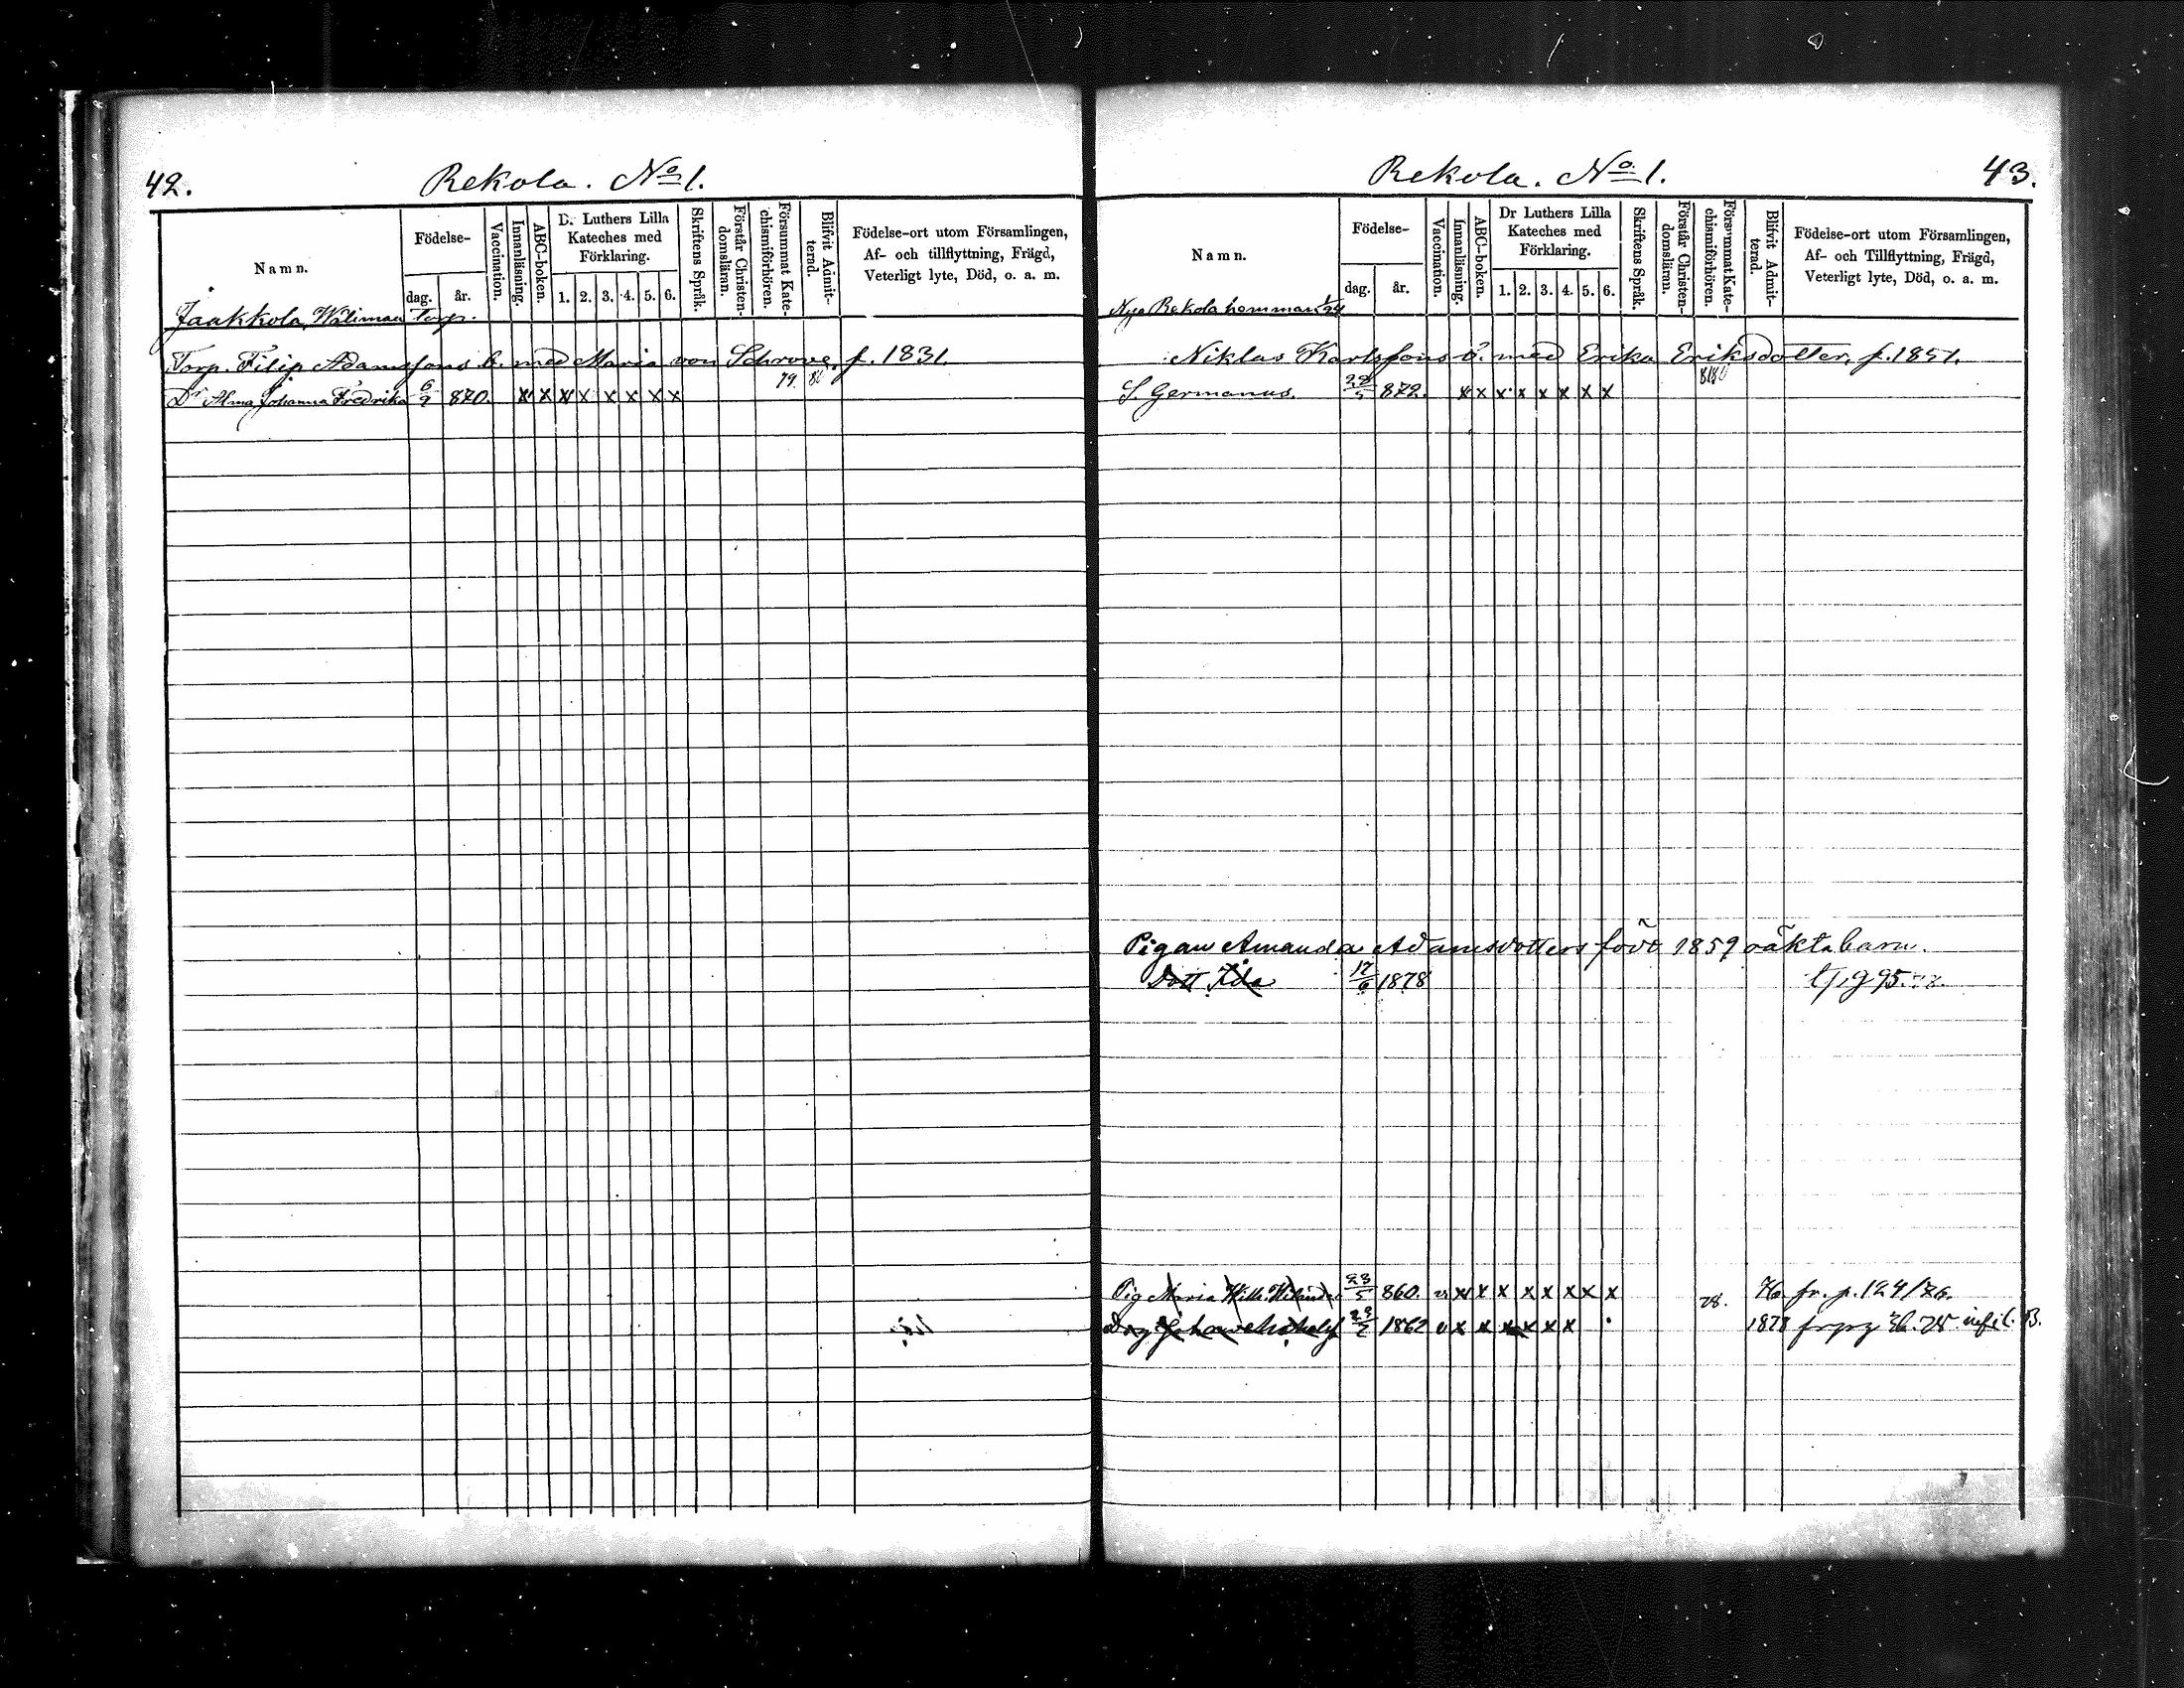 42.
Rekola. No 1.
Namn.
Födelse-
dag.
år.
Vaccination.
Innanläsning.
ABC-boken.
D. Luthers Lilla
Kateches med
Förklaring.
1. 2. 3. 4. 5. 6.
Skriftens Språk.
Förstår Christen-
domsläran.
Försummat Kate-
chismiförhören.
Blifvit Admit-
terad.
Födelse-ort utom Församlingen,
Af- och tillflyttning, Frägd,
Veterligt lyte, Död, o. a. m.
Jaakkola, Wäliman torp.
Torp. Filip Adamssons b. med Maria von Schrove, f. 1831.
79.
Dr Alma Johanna Fredrika 6/2 870. x x x x x x x x
43.
Rekola. No 1.
Namn.
Födelse-
dag.
år.
Vaccination.
Innanläsning.
ABC-boken.
Dr Luthers Lilla
Kateches med
Förklaring.
1. 2. 3. 4. 5. 6.
Skriftens Språk.
Förstår Christen-
domsläran.
Försummat Kate-
chismiförhören.
Blifvit Admit-
terad.
Födelse-ort utom Församlingen,
Af- och Tillflyttning, Frägd,
Veterligt lyte, Död, o. a. m.
Nya Rekola hemman 1/24
Niklas Karlssons b. med Erika Eriksdotter, f. 1851.
S. Germanus. 28/5 872. x x x x x x x x
Pigan Amanda Adamsdotters född 1859 oäkta barn.
Dott Ida 17/6 1878
Pig Maria Wilh. 23/5 860. v x x x x x x x x 78. 76 fr. p. 124/86.
Johan 23/7 1862 v x x x x x x 1878